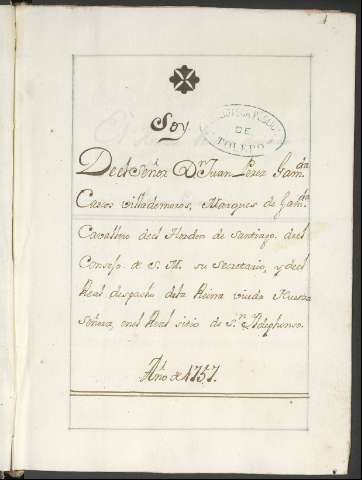 Soy
BIBLIOTECA PUBLICA
DE
TOLEDO
De el Señor Dn Juan Perez Gamda
Caeros villademoros, Marques de Gamda
Cavallero de el Horden de Santiago. de el
Consejo de S. M. su Secretario, y de el
Real despacho de la Reina viuda Nuestra
Señora, en el Real sitio de Sn Ildephonso.
Año de 1757.